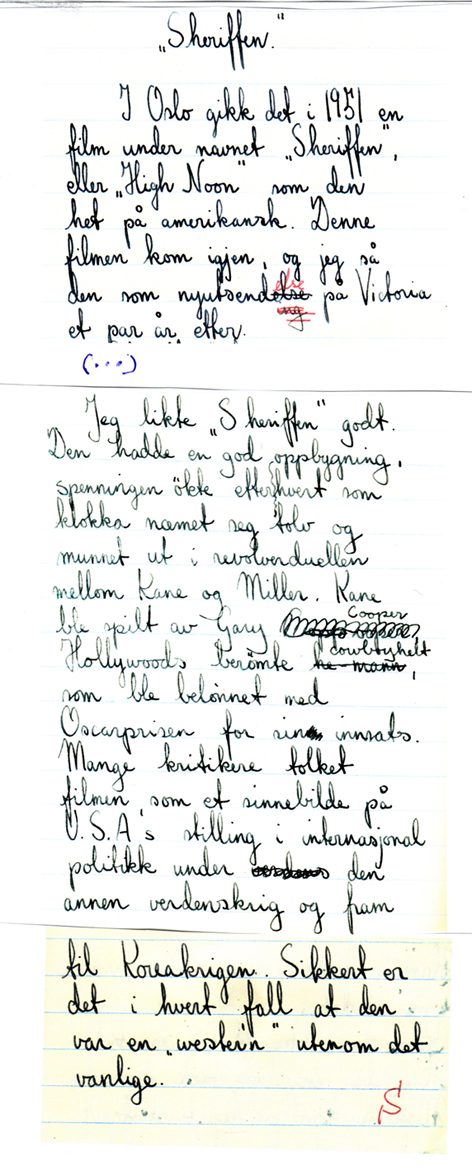 „Sheriffen."
I Oslo gikk det i 1951 en
film under navnet „Sheriffen",
eller „High Noon" som den
het på amerikansk. Denne
filmen kom igjen, og jeg så
else
den som nyutsendelse på Victoria
et par år efter.
(...)
Jeg likte „Sheriffen" godt.
Den hadde en god oppbygning,
spenningen økte efterhvert som
klokka nærmet seg tolv og
munnet ut i revolverduellen
mellom Kane og Miller. Kane
Cooper
ble spilt av Gary
cowboyhelt
Hollywoods berömte he-mann,
som ble belönnet med
Oscarprisen for sin innsats.
Mange kritikere tolket
filmen som et sinnebilde på
U.S.A's stilling i internasjonal
politikk under den
annen verdenskrig og fram
til Koreakrigen. Sikkert er
det i hvert fall at den
var en „western" utenom det
vanlige.
S